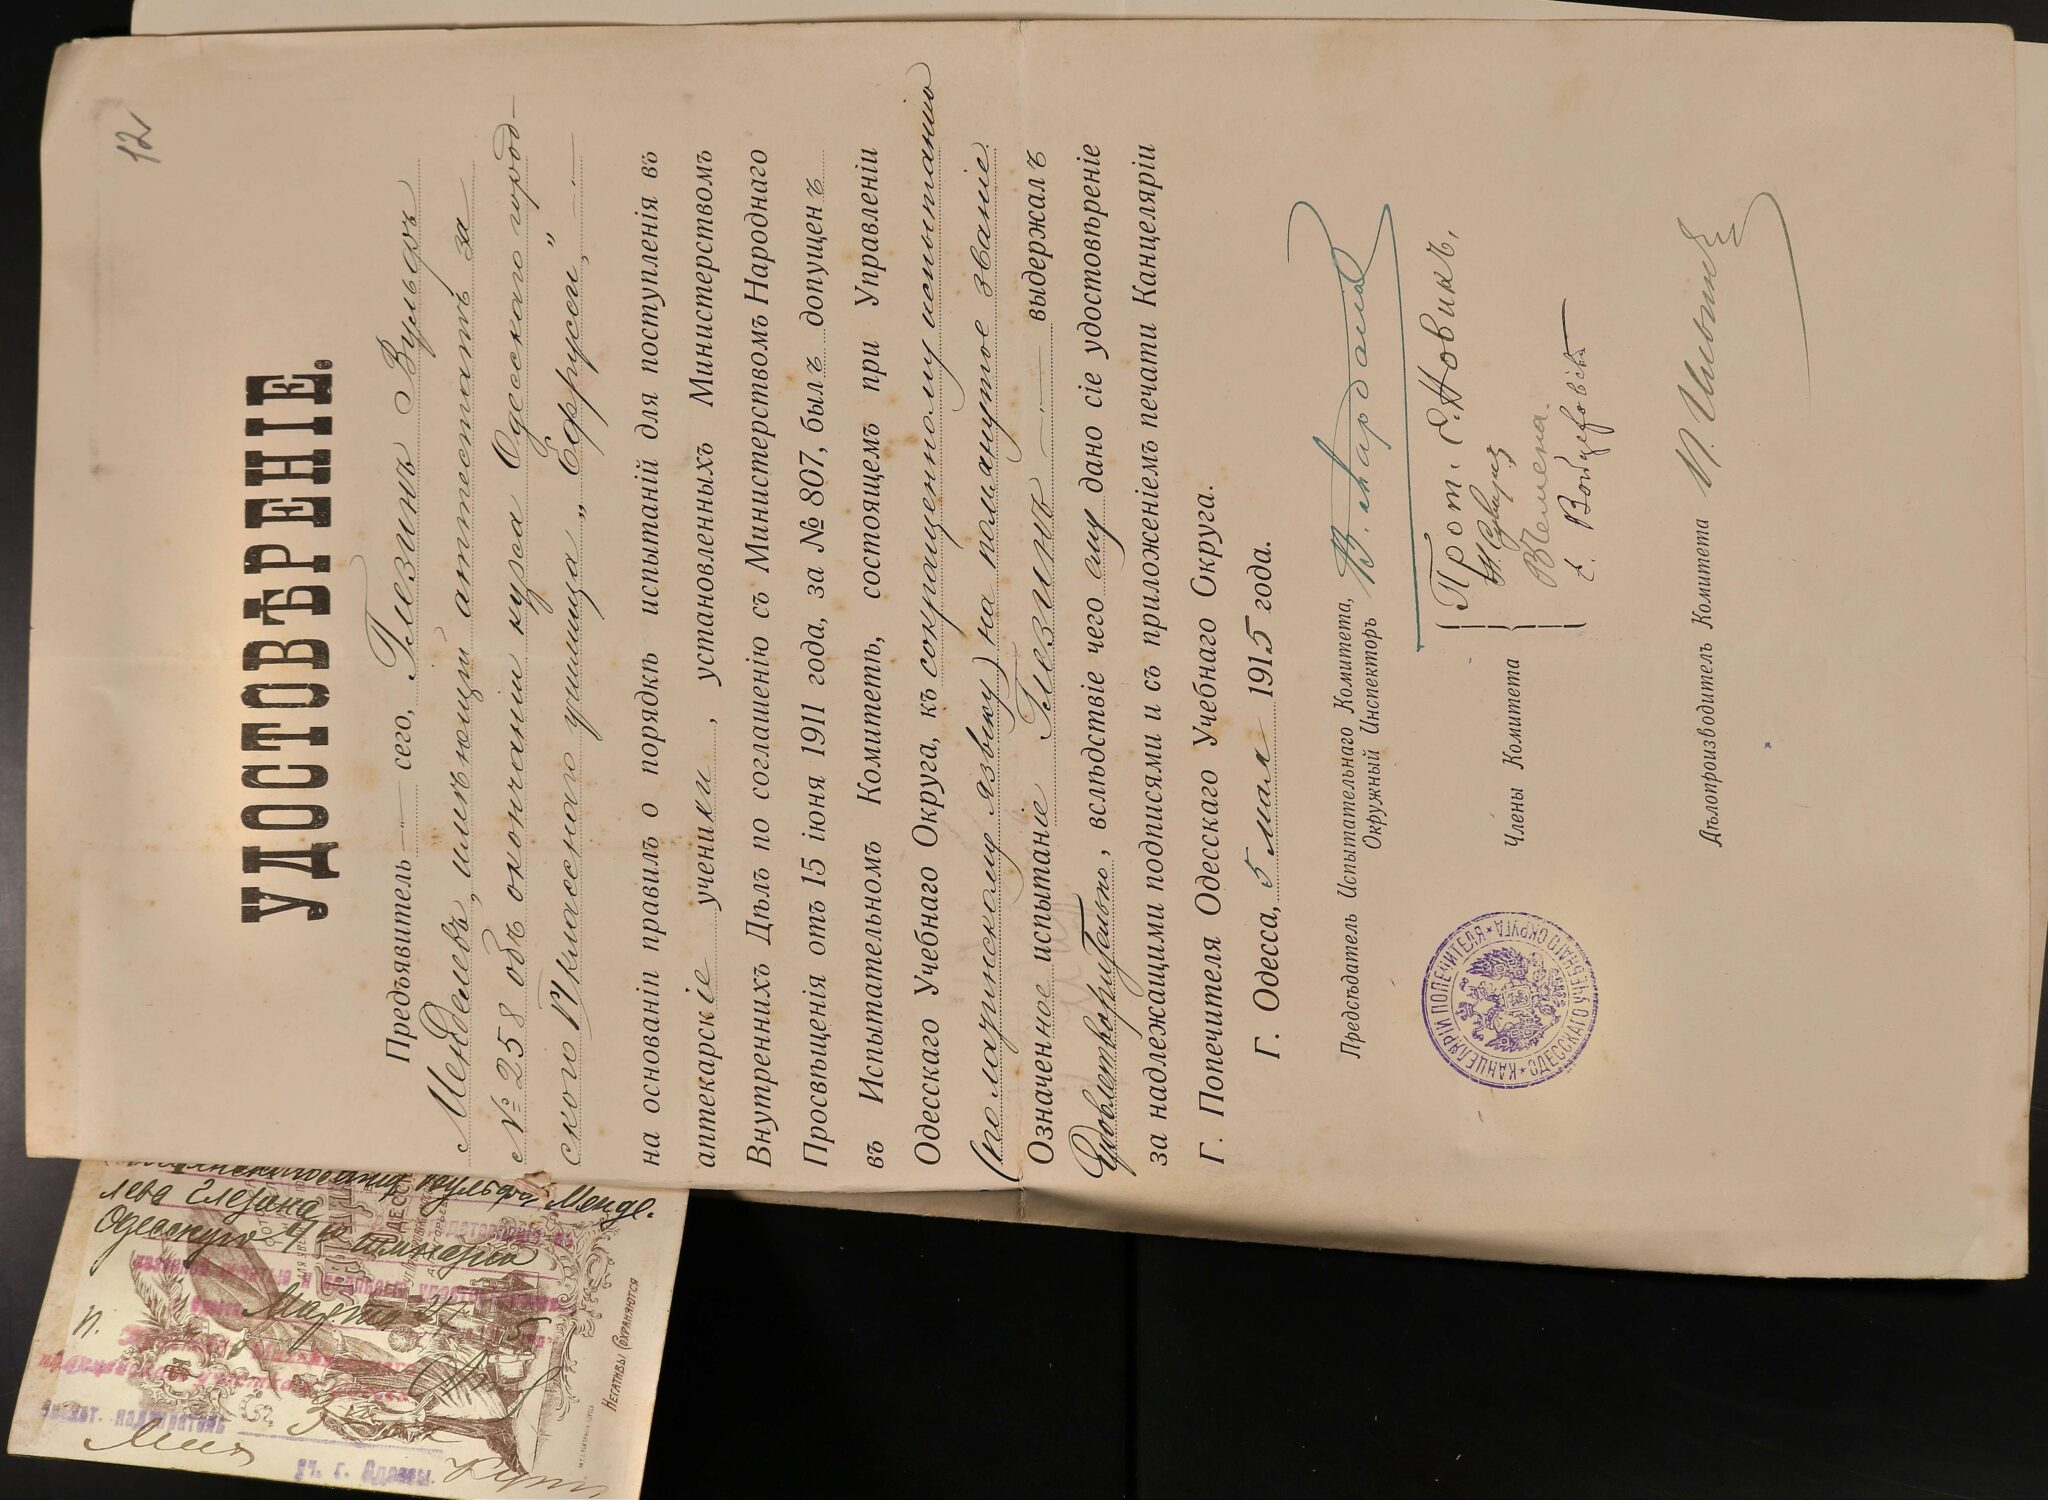 12
УДОСТОВѢРЕНІЕ.
Предъявитель сего, Глезинъ Вульфъ
Менделевъ, имѣющій аттестатъ за
№ 258 объ окончаніи курса Одесскаго город-
ского IV классного училища „Ефрусси",
на основаніи правилъ о порядкѣ испытаній для поступленія въ
аптекарскіе ученики, установленныхъ Министерствомъ
Внутреннихъ Дѣлъ по соглашенію съ Министерствомъ Народнаго
Просвѣщенія отъ 15 іюня 1911 года, за № 807, былъ допущенъ
въ Испытательномъ Комитетѣ, состоящемъ при Управленіи
Одесскаго Учебнаго Округа, къ сокращенному испытанію
(по латинскому языку) на помянутое званіе.
Означенное испытаніе Глезинъ выдержалъ
Удовлетворительно, вслѣдствіе чего ему дано сіе удостовѣреніе
за надлежащими подписями и съ приложеніемъ печати Канцеляріи
Г. Попечителя Одесскаго Учебнаго Округа.
Г. Одесса, 5 мая 1915 года.
Предсѣдатель Испытательнаго Комитета,
Окружный Инспекторъ
Члены Комитета
Прот. С. Новикъ,
Дѣлопроизводитель Комитета
КАНЦЕЛЯРІИ ПОПЕЧИТЕЛЯ
ОДЕССКАГО УЧЕБНАГО ОКРУГА
Вульфа Менде-
лева Глезина
Одесскую 4ю
Марта
въ г. Одессы.
НЕГАТИВЫ СОХРАНЯЮТСЯ